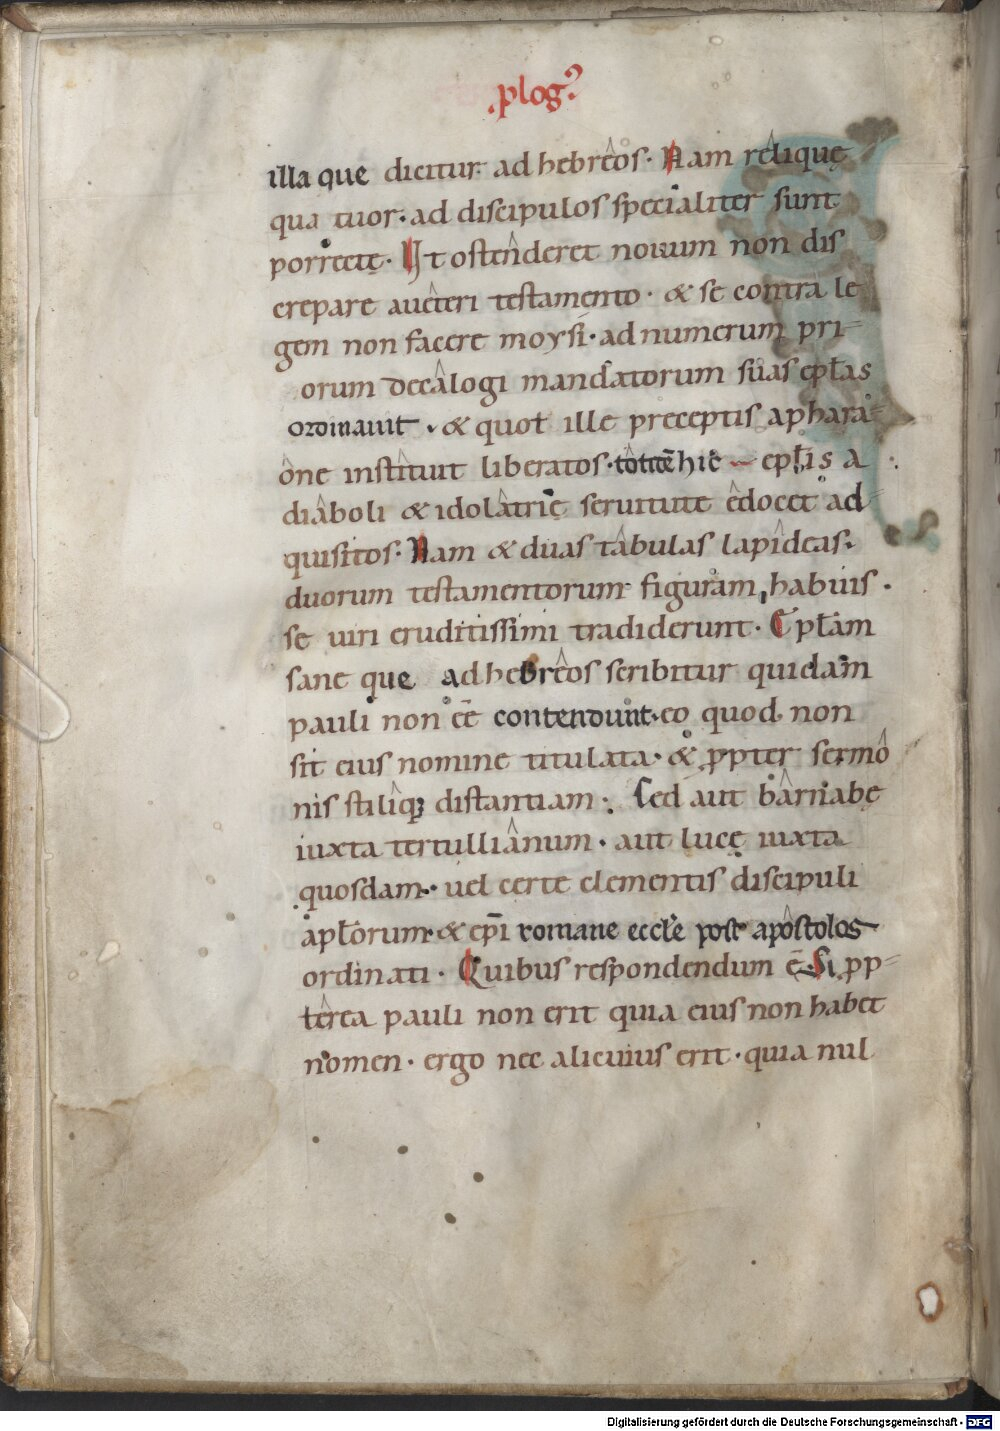 .plogꝰ
illa que dicitur ad hebreos. Nam relique
qua tuor. ad discipulos specialiter sunt
porrecte. Ut ostenderet nouum non dis
crepare aucteri testamento. & se contra le
gem non facere moysi. ad numerum pri-
orum decalogi mandatorum suas eplas
ordinauit. & quot ille preceptis a phara-
one instituit liberatos. totidē hic eplis a
diaboli & idolatrie seruitute edocet ad-
quisitos. Nam & duas tabulas lapideas.
duorum testamentorum figuram habuis.
se uiri eruditissimi tradiderunt. Eplam
sane que ad hebreos scribitur quidam
pauli non ēē contendunt. eo quod non
sit eius nomine titulata. & ꝓpter sermo
nis stiliqꝫ distantiam. Sed aut barnabe
iuxta tertullianum. aut luce iuxta
quosdam. uel certe clementis discipuli
aplorum & epi romane eccle post apostolos
ordinati. Quibus respondendum ē. Si ꝓp-
terea pauli non erit quia eius non habet
nomen. ergo nec alicuius erit. quia nul
Digitalisierung gefördert durch die Deutsche Forschungsgemeinschaft - DFG